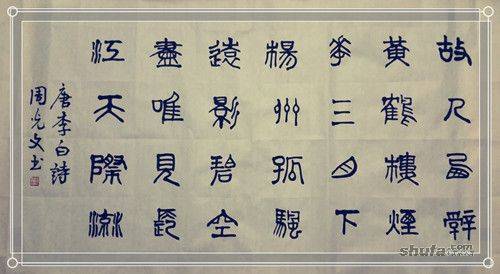 故人西辭
黃鶴樓煙
華三月下
楊州孤颿
遠影碧空
盡唯見長
江天際流
唐李白詩
周光文书
shufa.com